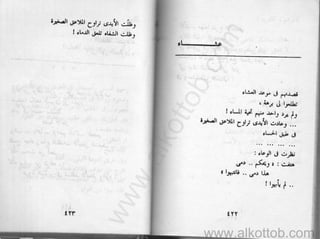 عشاء
قصدتهم في موعد العشاء
تطالعوا لي برهة ،
ولم يرد واحد منهم تحية المساء !
... وعادت الأيدي تراوح الملاعق الصغيرة
في طبق الحساء
... ... ... ...
نظرت في الوعاء :
هتفت : « ويحكم .. دمي
هذا دمي .. فانتبهوا »
.. لم يأبهوا !
٤٢٢
وظلّت الأيدي تراوح الملاعق الصغيرة
وظلت الشفاه تلعق الدماء !
٤٢٣
www.alkottob.com
www.alkottob.com